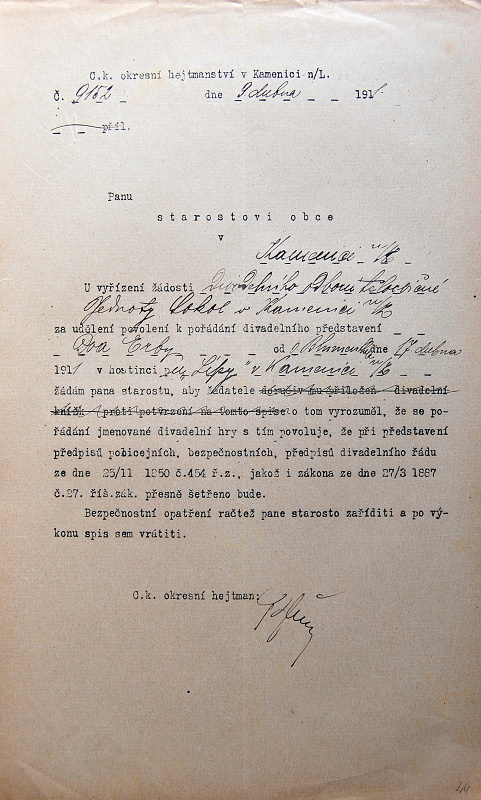 C.k. okresní hejtmanství v Kamenici n/L.
č. 9152 dne 9 dubna 191
příl.
Panu
starostovi obce
v
Kamenici n/L
U vyřízení žádosti Divadelního odboru tělocvičné
Jednoty Sokol v Kamenici n/L
za udělení povolení k pořádání divadelního představení
Erby od Blumenthal dne 17 dubna
191 v hostinci "Lípy" v Kamenici n/L
žádám pana starostu, aby žadatele doručiv mu přiložen divadelní
knihu proti potvrzení na tomto spise o tom vyrozuměl, že se po-
řádání jmenované divadelní hry s tím povoluje, že při představení
předpisů policejních, bezpečnostních, předpisů divadelního řádu
ze dne 25/11 1850 č.454 ř.z., jakož i zákona ze dne 27/3 1887
č.27. říš.zák. přesně šetřeno bude.
Bezpečnostní opatření račtež pane starosto zaříditi a po vý-
konu spis sem vrátiti.
C.k. okresní hejtman:
44